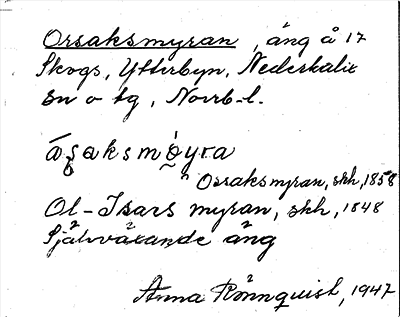 Orsaksmyran, äng å 17
Skogs, Ytterbyn, Nederkalix
sn o tg, Norrb-l.
áʂaksmòyra
Orsaksmyran, skh, 1858
Ol-Isars myran, skh, 1848
Självväxande äng
Anna Rönnquist, 1947